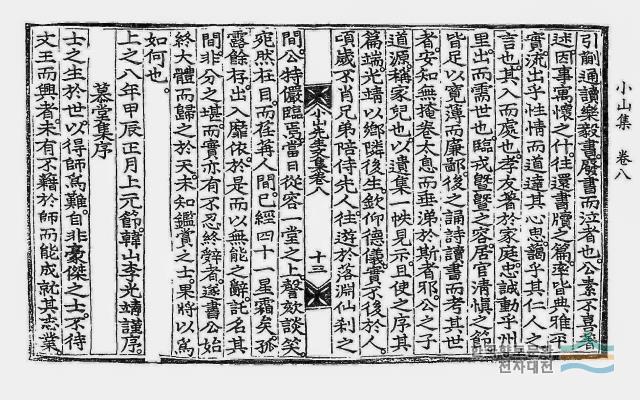 小山集 卷八
引前通讀樂毅書廢書而泣者也公素不喜著
述因事寓懷之什往還書牘之篇率皆典雅平
實流出乎性情而道達其心思藹乎其仁人之
言也其入而處也孝友著於家庭忠誠動乎州
里出而需世也臨戎曁曁之容居官淸愼之節
皆足以寬薄而廉鄙後之誦詩讀書而考其世
者安知無掩卷太息而垂涕於斯者耶公之子
道源稱家兒也以遺集一帙見示且使之序其
篇端光靖以鄕隣後生欽仰德儀實不後於人
頃歲不肖兄弟陪侍先人往遊於落淵仙利之
小先生文集卷八 十三
間公特儼臨焉當日從容一堂之上謦欬談笑
宛然在目而荏苒人間已經四十一星霜矣孤
露餘存出入靡依於是而以無能之辭託名其
間非分之堪而實亦有不忍終辭者遂書公始
終大體而歸之於天未知鑑賞之士果將以爲
如何也
上之八年甲辰正月上元節韓山李光靖謹序
慕堂集序
士之生於世以得師爲難自非豪傑之士不待
文王而興者未有不藉於師而能成就其志業
전자대전